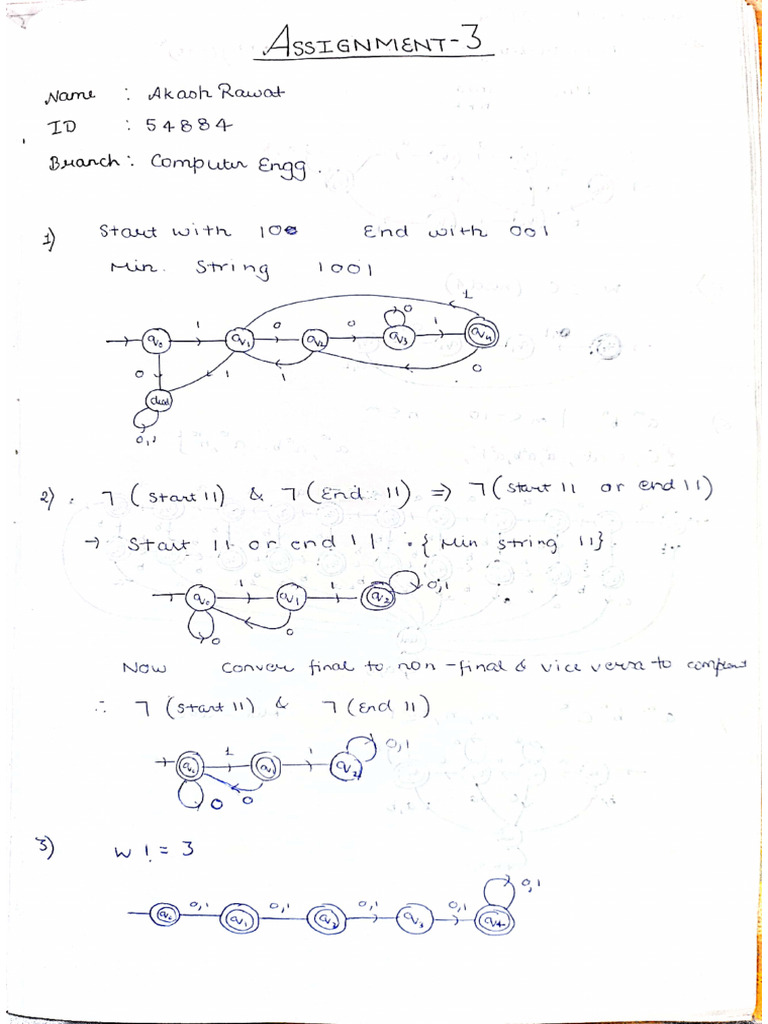 ASSIGNMENT-3
Name : Akash Rawat
ID : 54884
Branch : Computer Engg.
1) Start with 100 End with 001
Min. String 1001
1
0
q0 1 q1 0 q2 0 q3 1 q4
0 1 1 0
dead
0,1
2) . ㄱ (Start 11) & ㄱ (End 11) => ㄱ (Start 11 or end 11)
→ Start 11 or end 11 . { Min string 11}
q0 1 q1 1 q2 0,1
0 0
Now Conver final to non-final & vice versa to complent
∴ ㄱ (Start 11) & ㄱ (End 11)
q0 1 q1 1 q2 0,1
0 0
3) w != 3
0,1
q0 0,1 q1 0,1 q2 0,1 q3 0,1 q4